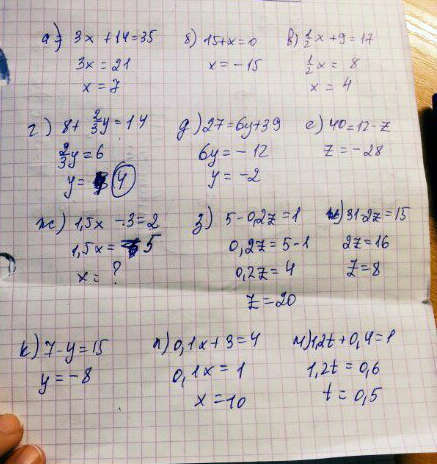 а) 3x + 14 = 35
3x = 21
x = 7
б) 15 + x = 0
x = -15
в) 1/2 x + 9 = 17
1/2 x = 8
x = 4
г) 8 + 2/3 y = 14
2/3 y = 6
y = 4
д) 27 = 6y + 39
6y = -12
y = -2
е) 40 = 12 - z
z = -28
ж) 1,5x - 3 = 2
1,5x = 5
x = ?
з) 5 - 0,2z = 1
0,2z = 5 - 1
0,2z = 4
z = 20
и) 31 - 2z = 15
2z = 16
z = 8
к) 7 - y = 15
y = -8
л) 0,1x + 3 = 4
0,1x = 1
x = 10
м) 1,2t + 0,4 = 1
1,2t = 0,6
t = 0,5